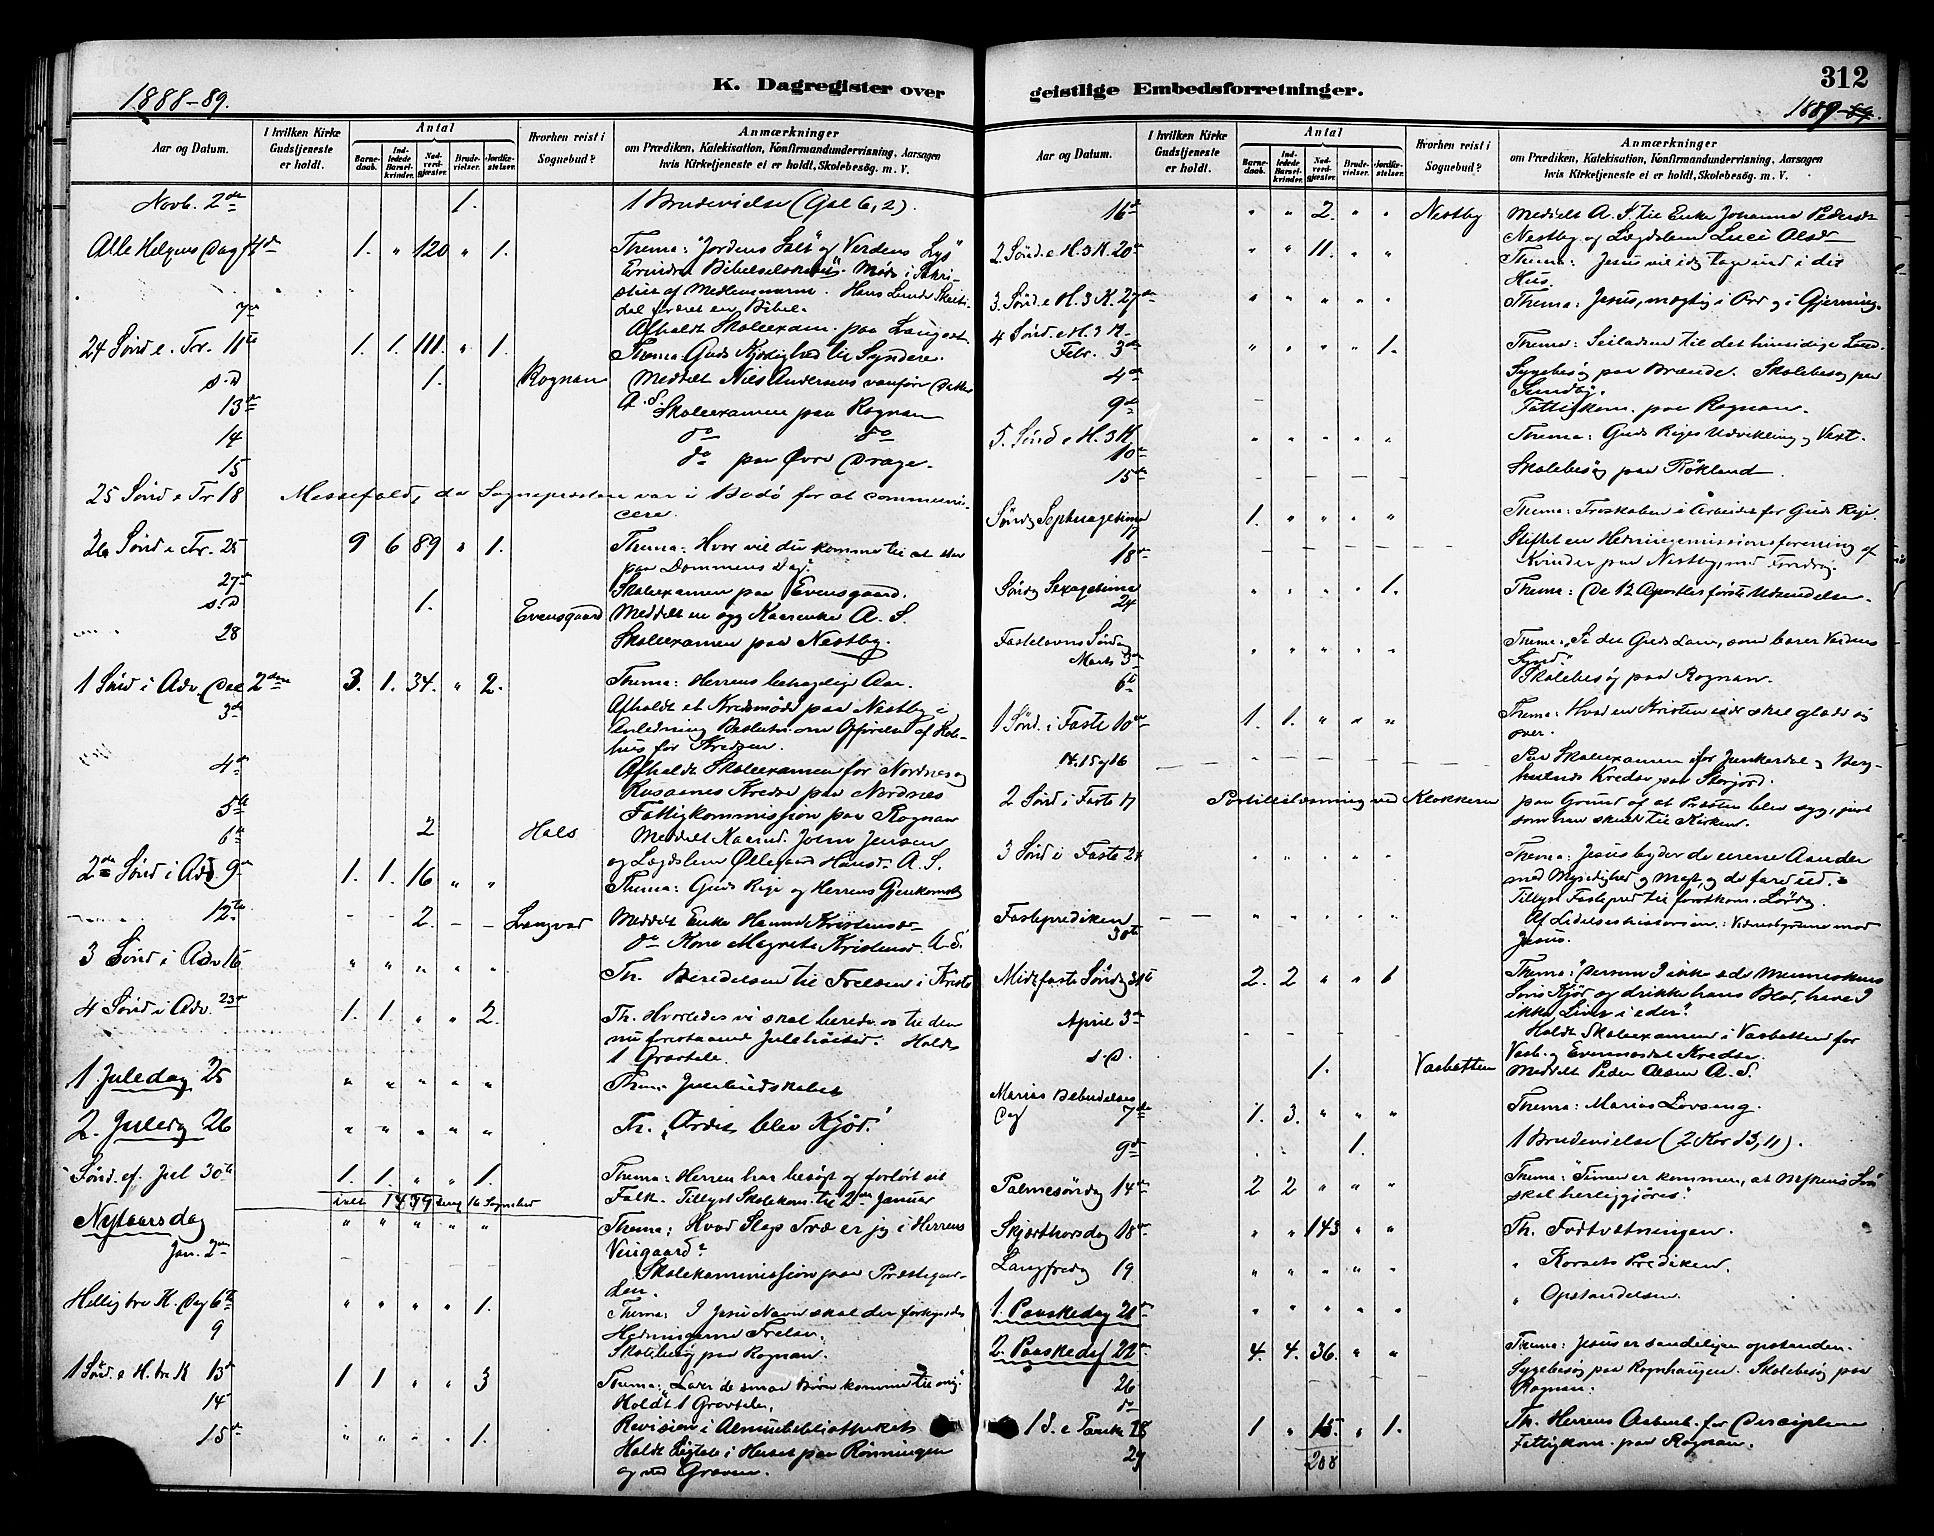 K. Dagregister over
1888-89.
Aar og Datum.
I hvilken Kirke Gudstjeneste er holdt.
Antal
Barnedaab.
Indledede Barselkvinder.
Nadverdgjæster.
Brudevielser.
Jordfæstelser.
Hvorhen reist i Sognebud?
Anmærkninger
om Prædiken, Katekisation, Konfirmandundervisning, Aarsagen
hvis Kirketjeneste ei er holdt, Skolebesøg. m. V.
Novb. 2de 1. 1 Brudevielse (Gal 6, 2).
Alle Helgens Dag 4de 1. " 120 " 1. Thema: "Jordens Salt" og Verdens Lys"
7de
Afholdt Skoleexam. paa
24 Sønd e. Tr. 11te 1. 1. 111. " 1. Thema: Guds Kjærlighed til Syndere.
s.D 1. Rognan Meddelt Nils Andersens vanføre
A. S.
13de Skoleexamen paa Rognan
14 do do
15 do paa Øvre Drage.
25 Sønd e Tr 18 Messefald, da Sognepresten var i Bodø for at communi-
cere.
26 Sønd e Tr. 25 9 6 89 " 1. Thema: Hvor vil du komme til at staa
paa Dommens Dag?
27de Skoleexamen paa Evensgaard.
s.D 1. Evensgaard Meddelt en syg A. S.
28 Skoleexamen paa Nestby.
1 Sønd i Adv. Dec 2den 3. 1. 34. " 2. Thema: Herrens behagelige Aar.
3de Afholdt et Kredsmøde paa Nestby i
Anledning Beslutn. om Opførelse af
hus for Kredsen.
4de Afholdt Skoleexamen for Nordnes og
Kreds paa Nordnes
5te Fattigkommission paa Rognan
6te 2 Hals Meddelt John Jensen
og Lægdslem A. S.
2den Sønd i Adv. 9de 1. 1. 16 " " Thema: Guds Rige og Herrens Gjenkomst
12te - - 2. - - Langvad Meddelt Enke Kristensd.
do Kone Kristensd. A. S.
3 Sønd i Adv 16 " " " " " Th. Beredelsen til Frelsen i Kristo
4 Sønd i Adv. 23de 1. 1. " " 2. Th. Hvorledes vi skal berede os til den
nu forestaaende Julehøitid. Holdt
1 Gravtale.
1 Juledag 25 " " " " " Thema
2. Juledag 26 " " " " " Th. "Ordet blev Kjød!
Sønd. ef. Jul 30te 1. 1. " " 1. Thema: Herren har besøgt og forløst sit
Folk. Tillyst Skolekom. til 2den Januar
Nytaarsdag " " " " " Thema: Hvad Slags Træ er jeg i Herrens
Vingaard?
Jan. 2den Skolekommission paa Præstegaar-
den.
Hellig tre K. Dag 6te " " " " 1. Thema: I Jesu Navn skal der forkyndes
Hedningerne Frelse.
9 Skolebesøg paa Rognan.
1 Sønd. e H. tre K 13de 1 1 " " 3 Thema: "Lader de smaa Børn komme til mig."
14 Holdt 1 Gravtale.
15de " " " " 1. Revision i Almuebibliotheket
Holdt Ligtale i Huset paa Rønningen
og ved Graven.
geistlige Embedsforretninger.
312
1889
Aar og Datum.
I hvilken Kirke Gudstjeneste er holdt.
Antal
Barnedaab.
Indledede Barselkvinder.
Nadverdgjæster.
Brudevielser.
Jordfæstelser.
Hvorhen reist i Sognebud?
Anmærkninger
om Prædiken, Katekisation, Konfirmandundervisning, Aarsagen
hvis Kirketjeneste ei er holdt, Skolebesøg. m. V.
16de " " 2. " " Nestby Meddelt A. S. til Enke Johanna Pedersdr
Nestby og Lægdslem Olsdr
2. Sønd. e H. 3 K. 20de " " 11. " " Thema: Jesus vil idag tage ind i dit
Hus.
3. Sønd. e H. 3 K. 27de " " " " " Thema: Jesus, mægtig i Ord og i Gjerning.
4 Sønd. e H. 3 K.
Febr. 3de " " " " 1. Thema: Seiladsen til det hinsidige Land.
4de Sygebesøg paa Brænde. Skolebesøg paa
Sundby.
9de Fattigkom. paa Rognan.
5. Sønd e H. 3 K
10de " " " " " Thema: Guds Riges Udvikling og Vext.
15de Skolebesøg paa Røkland.
Sønd. Septuagesima
17 1. " " " " Thema: Troskaben i Arbeidet for Guds Rige.
18de Stiftet en Hedningemissionsforening af
Kvinder paa Nestby, med Foredrag.
Sønd. Sexagesima
24 " " " " 1. Thema: De 12 Apostles første Udsendelse.
Fastelavns Søndag
Marts 3de " " " " " Thema: "Se det Guds Lam, som bærer Verdens
Synd."
6te Skolebesøg paa Rognan.
1 Sønd. i Faste 10de 1. 1. " " " Thema: Hvad en Kristen især skal glæde sig
over.
14. 15 og 16 Skoleexamen for Junkerdal og
Kredse paa Storjord.
2 Sønd i Faste 17 Postillelæsning ved Klokkeren paa Grund af at Præsten blev syg, just
som han skulde til Kirken.
3 Sønd i Faste 24 " " " " " Thema: Jesus byder de urene Aander
med Myndighed og Magt, og de fare ud.
Tillyst Fasteprd til førstkom. Lørdag.
Fasteprediken
30te " " " " " Af Lidelseshistorien: Vidnesbyrdene mod
Jesus.
Midtfaste Søndag 31te 2. 2 " " 1 Thema: "Dersom I ikke æde Menneskens
Søns Kjød og drikke hans Blod, have I
ikke Livet i eder".
April 3de Holdt Skoleexamen i Vasbotten for
Vasb. og Evenesdal Kredse.
s.D. 1. Vasbotten Meddelt Peder Olsen A. S.
Marias Bebudelses
Dag 7de 1. 3. " " " Thema: Marias Lovsang.
9de 1. 1 Brudevielse (2 Kor 13, 11).
Palmesøndag 14de 2 2 " " " Thema: "Timen er kommen, at Mskens Søn
skal herliggjøres".
Skjærthorsdag 18de " " 143 " " Th. Fodtvætningen.
Langfredag 19 " " " " " " Korsets Prediken.
1. Paaskedag 21de " " " " " " Opstandelsen.
2. Paaskedag 22de 4. 4. 36. " " Thema: Jesus er sandeligen opstanden.
26 Sygebesøg paa Rognhaugen. Skolebesøg paa
do Rognan.
1 S. e Paaske 28 1 " 15. " 1. Th. Herrens Aabenb. for Disciplene
29 Fattigkom. paa Rognan.
208